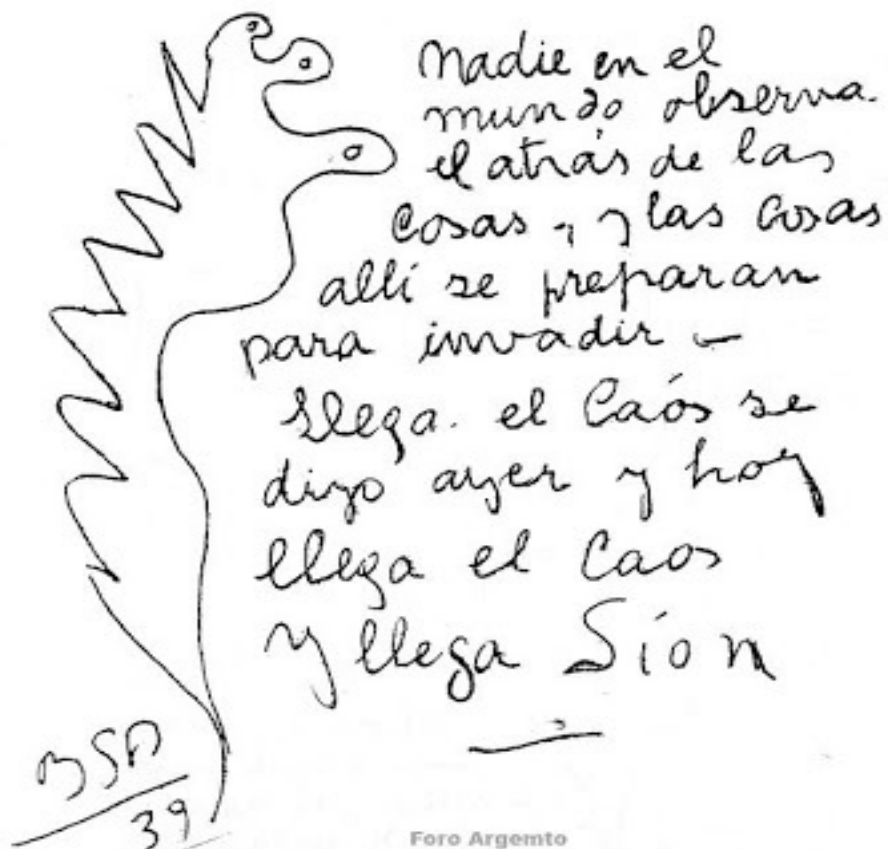 Nadie en el
mundo observa.
el atrás de las
cosas, y las cosas
allí se preparan
para invadir -
Llega. el Caós se
dijo ayer y hoy
llega el Caos
y llega Sion
BSP
39
Foro Argemto